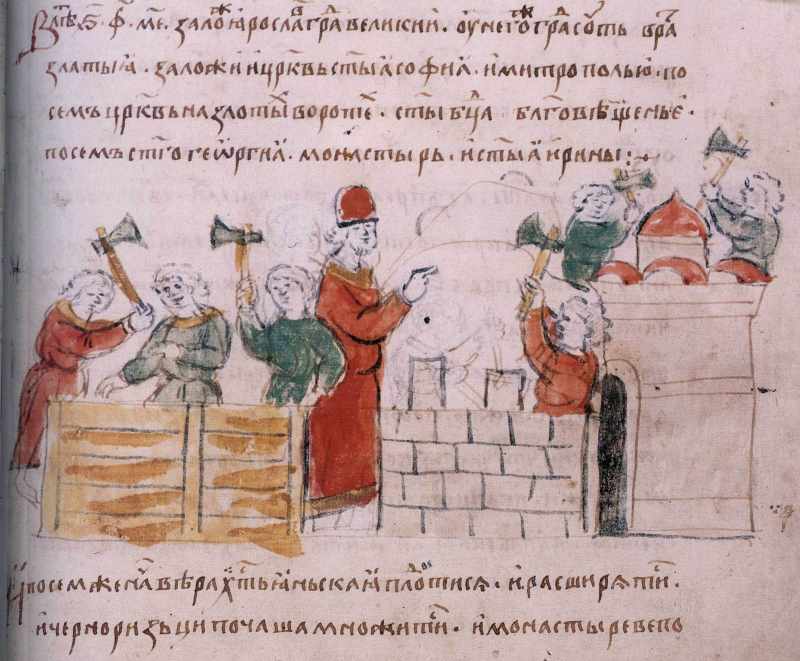 В лѣⷮ ҂ѕ҃ ф҃ м҃е заложи ꙗрославъ граⷣ великии · ѹ негоⷤ граⷣ сѹть врата
златыꙗ · заложи и црк҃вь ст҃ыꙗ софиꙗ · и митрополью · по
семъ црк҃вь на золотыⷯ воротѣⷯ · ст҃ы бц҃а бл҃говѣщенье ·
посемъ ст҃го георгиꙗ · монастырь · и ст҃ыꙗ ирины :
и при семже нача вѣра хрⷭ҇тьꙗньскаꙗ плодитисѧ · и расширѧти ·
и черноризьци почаша множитиⷭ · и монастыреве по